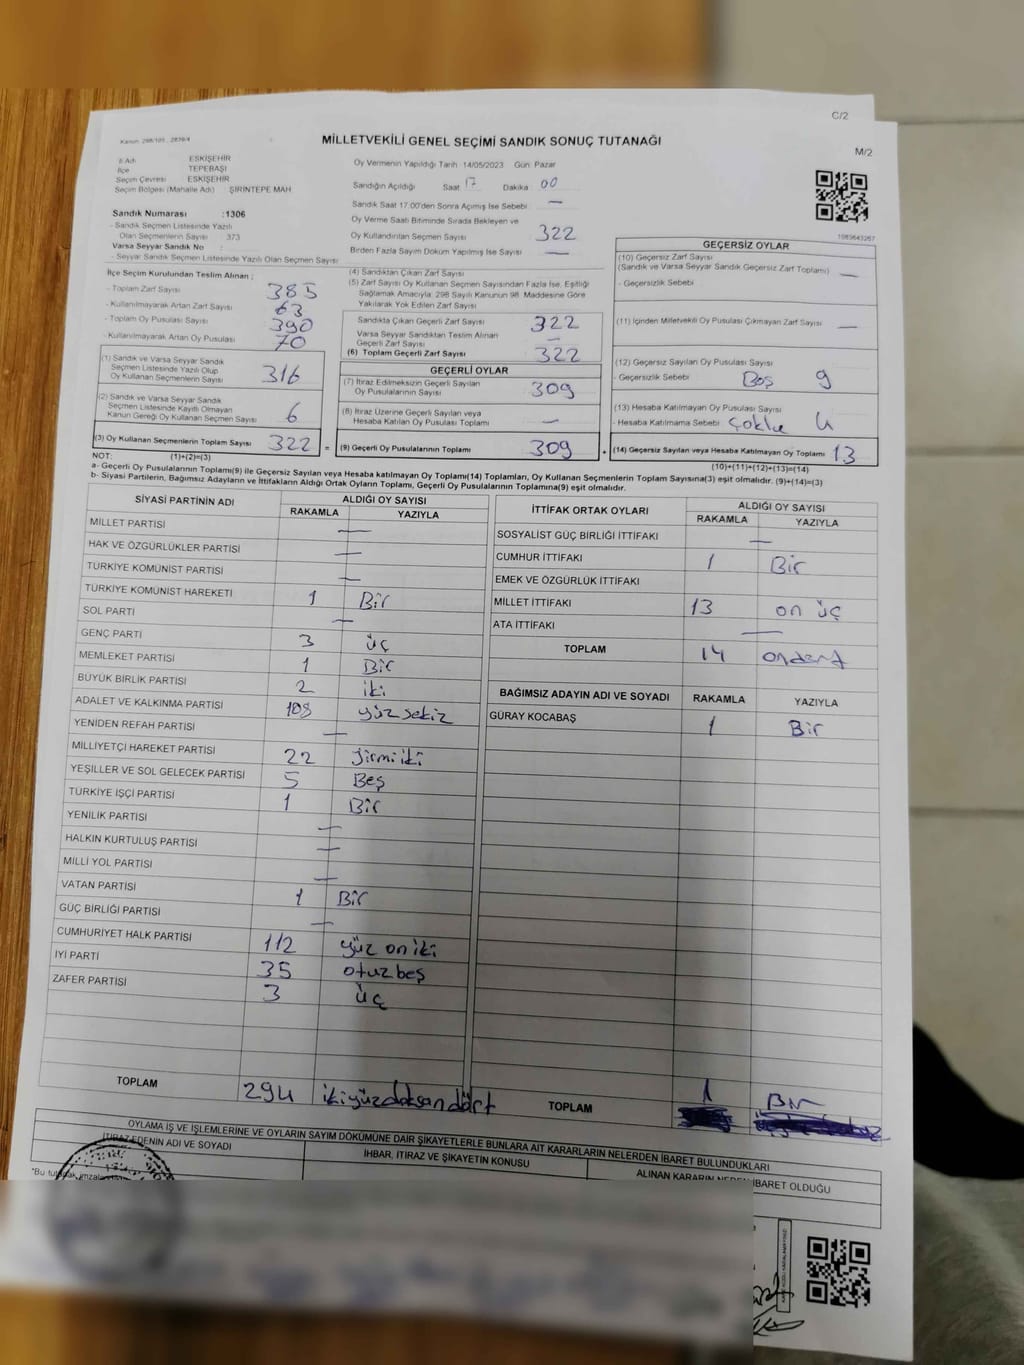 C/2
Kanun: 298/105 , 2839/4
MİLLETVEKİLİ GENEL SEÇİMİ SANDIK SONUÇ TUTANAĞI
M/2
İl Adı ESKİŞEHİR
İlçe TEPEBAŞI
Seçim Çevresi ESKİŞEHİR
Seçim Bölgesi (Mahalle Adı) ŞİRİNTEPE MAH
Sandık Numarası :1306
- Sandık Seçmen Listesinde Yazılı
Olan Seçmenlerin Sayısı : 373
Varsa Seyyar Sandık No :
- Seyyar Sandık Seçmen Listesinde Yazılı Olan Seçmen Sayısı
Oy Vermenin Yapıldığı Tarih :14/05/2023 Gün Pazar
Sandığın Açıldığı Saat 17 Dakika 00
Sandık Saat 17.00'den Sonra Açılmış İse Sebebi —
Oy Verme Saati Bitiminde Sırada Bekleyen ve
Oy Kullandırılan Seçmen Sayısı 322
Birden Fazla Sayım Döküm Yapılmış İse Sayısı —
İlçe Seçim Kurulundan Teslim Alınan :
- Toplam Zarf Sayısı 385
- Kullanılmayarak Artan Zarf Sayısı 63
- Toplam Oy Pusulası Sayısı 390
- Kullanılmayarak Artan Oy Pusulası 70
(1) Sandık ve Varsa Seyyar Sandık
Seçmen Listesinde Yazılı Olup
Oy Kullanan Seçmenlerin Sayısı 316
(2) Sandık ve Varsa Seyyar Sandık
Seçmen Listesinde Kayıtlı Olmayan
Kanun Gereği Oy Kullanan Seçmen Sayısı 6
(3) Oy Kullanan Seçmenlerin Toplam Sayısı 322
(4) Sandıktan Çıkan Zarf Sayısı
(5) Zarf Sayısı Oy Kullanan Seçmen Sayısından Fazla İse, Eşitliği
Sağlamak Amacıyla; 298 Sayılı Kanunun 98. Maddesine Göre
Yakılarak Yok Edilen Zarf Sayısı
Sandıkta Çıkan Geçerli Zarf Sayısı 322
Varsa Seyyar Sandıktan Teslim Alınan
Geçerli Zarf Sayısı —
(6) Toplam Geçerli Zarf Sayısı 322
GEÇERLİ OYLAR
(7) İtiraz Edilmeksizin Geçerli Sayılan
Oy Pusulalarının Sayısı 309
(8) İtiraz Üzerine Geçerli Sayılan veya
Hesaba Katılan Oy Pusulası Toplamı —
= (9) Geçerli Oy Pusulalarının Toplamı 309
1089643267
GEÇERSİZ OYLAR
(10) Geçersiz Zarf Sayısı
(Sandık ve Varsa Seyyar Sandık Geçersiz Zarf Toplamı) —
- Geçersizlik Sebebi
(11) İçinden Milletvekili Oy Pusulası Çıkmayan Zarf Sayısı —
(12) Geçersiz Sayılan Oy Pusulası Sayısı
- Geçersizlik Sebebi Boş 9
(13) Hesaba Katılmayan Oy Pusulası Sayısı
- Hesaba Katılmama Sebebi 4
+ (14) Geçersiz Sayılan veya Hesaba Katılmayan Oy Toplamı 13
NOT: (1)+(2)=(3)
(10)+(11)+(12)+(13)=(14)
a- Geçerli Oy Pusulalarının Toplamı(9) ile Geçersiz Sayılan veya Hesaba katılmayan Oy Toplamı(14) Toplamları, Oy Kullanan Seçmenlerin Toplam Sayısına(3) eşit olmalıdır. (9)+(14)=(3)
b- Siyasi Partilerin, Bağımsız Adayların ve İttifakların Aldığı Ortak Oyların Toplamı, Geçerli Oy Pusulalarının Toplamına(9) eşit olmalıdır.
SİYASİ PARTİNİN ADI ALDIĞI OY SAYISI
RAKAMLA YAZIYLA
MİLLET PARTİSİ —
HAK VE ÖZGÜRLÜKLER PARTİSİ —
TÜRKİYE KOMÜNİST PARTİSİ —
TÜRKİYE KOMÜNİST HAREKETİ 1 Bir
SOL PARTİ —
GENÇ PARTİ 3 üç
MEMLEKET PARTİSİ 1 Bir
BÜYÜK BİRLİK PARTİSİ 2 iki
ADALET VE KALKINMA PARTİSİ 108 yüz sekiz
YENİDEN REFAH PARTİSİ —
MİLLİYETÇİ HAREKET PARTİSİ 22 yirmi iki
YEŞİLLER VE SOL GELECEK PARTİSİ 5 Beş
TÜRKİYE İŞÇİ PARTİSİ 1 Bir
YENİLİK PARTİSİ —
HALKIN KURTULUŞ PARTİSİ —
MİLLİ YOL PARTİSİ —
VATAN PARTİSİ 1 Bir
GÜÇ BİRLİĞİ PARTİSİ —
CUMHURİYET HALK PARTİSİ 112 yüz on iki
İYİ PARTİ 35 otuz beş
ZAFER PARTİSİ 3 üç
TOPLAM 294 ikiyüzdoksandört
İTTİFAK ORTAK OYLARI ALDIĞI OY SAYISI
RAKAMLA YAZIYLA
SOSYALİST GÜÇ BİRLİĞİ İTTİFAKI —
CUMHUR İTTİFAKI 1 Bir
EMEK VE ÖZGÜRLÜK İTTİFAKI
MİLLET İTTİFAKI 13 on üç
ATA İTTİFAKI —
TOPLAM 14 ondört
BAĞIMSIZ ADAYIN ADI VE SOYADI RAKAMLA YAZIYLA
GÜRAY KOCABAŞ 1 Bir
TOPLAM 1 Bir
OYLAMA İŞ VE İŞLEMLERİNE VE OYLARIN SAYIM DÖKÜMÜNE DAİR ŞİKAYETLERLE BUNLARA AİT KARARLARIN NELERDEN İBARET BULUNDUKLARI
İTİRAZ EDENİN ADI VE SOYADI
İHBAR, İTİRAZ VE ŞİKAYETİN KONUSU
ALINAN KARARIN NEDEN İBARET OLDUĞU